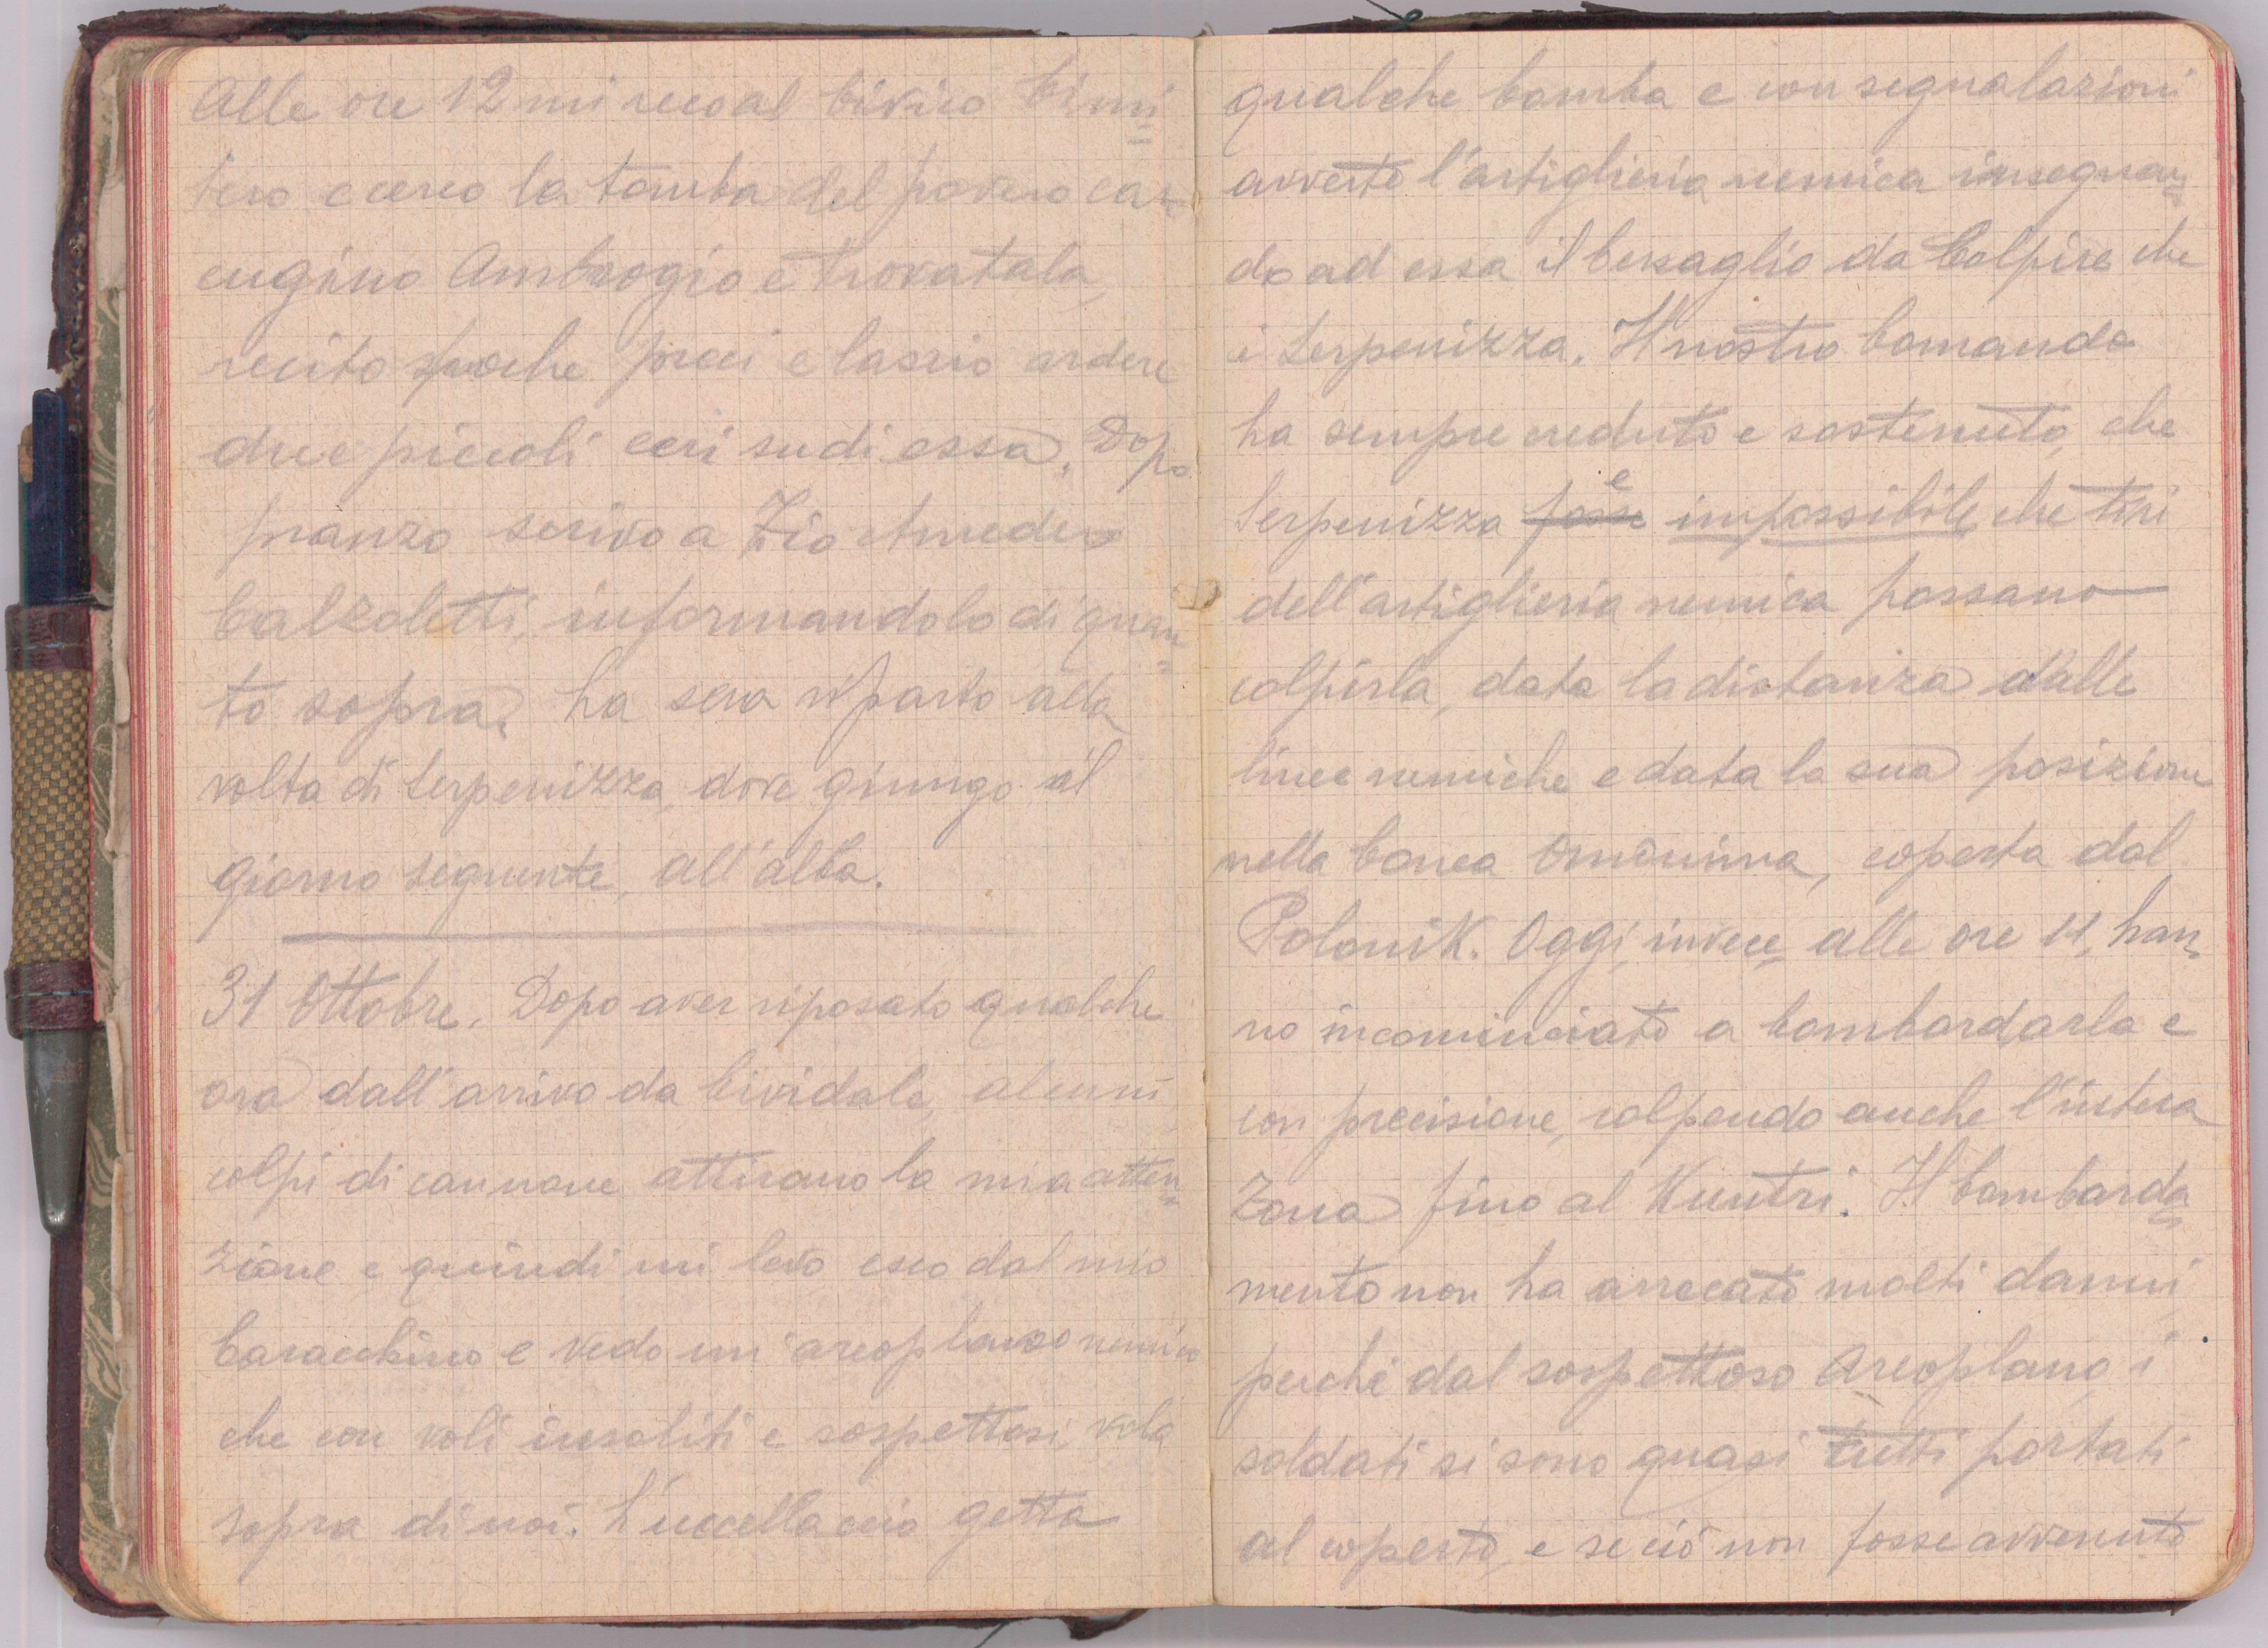 Alle ore 12 mi reco al Civico Cimi=
tero e cerco la tomba del povero ca=
cugino Ambrogio e trovatala,
recito poche preci e lascio ardere
due piccoli ceri su di essa. Dopo
pranzo scrivo a Zio Amedeo
Calzoletti, informandolo di quan=
to sopra. La sera riparto alla
volta di Serpenizza, dove giungo il
giorno seguente, all'alba.
31 Ottobre. Dopo aver riposato qualche
ora dall'arrivo da Cividale, alcuni
colpi di cannone attirano la mia atten=
zione e quindi mi levo esco dal mio
baracchino e vedo un areoplano nemico
che con voli insoliti e sospettosi, vola
sopra di noi. L'uccellaccio getta
qualche bomba e con segnalazioni
avverte l'artiglieria nemica insegnan=
do ad essa il bersaglio da Colpire che
è Serpenizza. Il nostro Comando
ha sempre creduto e sostenuto, che
Serpenizza fosse è impossibile che tiri
dell'artiglieria nemica possano
colpirla, data la distanza dalle
linee nemiche e data la sua posizione
nella Conca Omonima, coperta dal
Polonik. Oggi, invece, alle ore 11, han=
no incominciato a bombardarla e
con precisione, colpendo anche l'intera
Zona fino al Kuntri. Il bombarda=
mento non ha arrecato molti danni,
perchè dal sospettoso Areoplano, i
soldati si sono quasi tutti portati
al coperto, e se ciò non fosse avvenuto